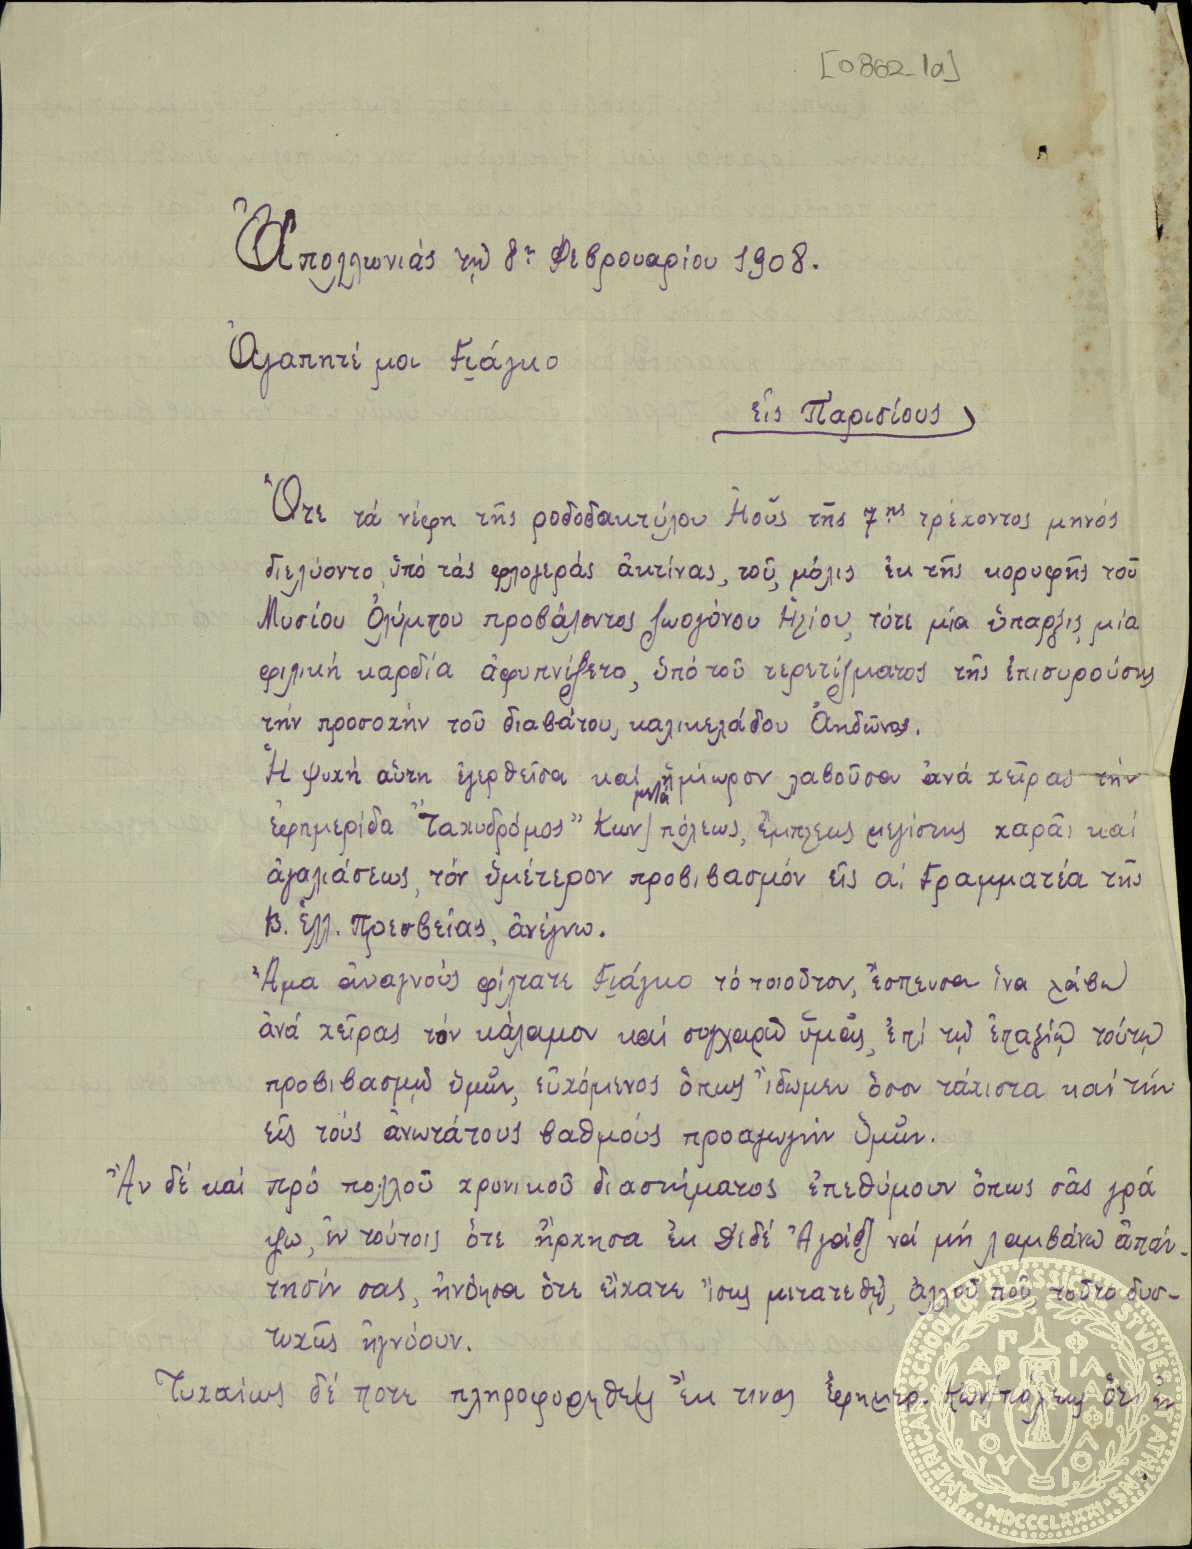 [0862-1a]
Ἀπολλωνιάς τῇ 8ῃ Φεβρουαρίου 1908.
Ἀγαπητέ μοι Γιάγκο
εἰς Παρισίους
Ὅτε τά νέφη τῆς ροδοδακτύλου Ἠοῦς τῆς 7ης τρέχοντος μηνός
διελύοντο ὑπό τάς φλογεράς ἀκτίνας, τοῦ, μόλις ἐκ τῆς κορυφῆς τοῦ
Μυσίου Ὀλύμπου προβάλοντος ζωογόνου Ἡλίου, τότε μία ὕπαρξις, μία
φιλική καρδία ἀφυπνίζετο, ὑπό τοῦ τερετίσματος τῆς ἐπισυρούσης
τήν προσοχήν τοῦ διαβάτου, καλικελάδου Ἀηδῶνος.
Ἡ ψυχή αὕτη ἐγερθεῖσα καί μετά ἡμίωρον λαβοῦσα ἀνά χεῖρας τήν
ἐφημερίδα "Ταχυδρόμος" Κων/πόλεως, ἔμπλεως μεγίστης χαρᾶς καί
ἀγαλιάσεως, τόν ὑμέτερον προβιβασμόν εἰς αί Γραμματέα τῆς
Β. Ἑλλ. Πρεσβείας, ἀνέγνω.
Ἅμα ἀναγνούς φίλτατε Γιάγκο τό τοιοῦτον, ἔσπευσα ἵνα λάβω
ἀνά χεῖρας τόν κάλαμον καί συγχαρῶ ὑμᾶς, ἐπί τῷ ἐπαξίῳ τούτῳ
προβιβασμῷ ὑμῶν, εὐχόμενος ὅπως ἴδωμεν ὅσον τάχιστα καί τήν
εἰς τούς ἀνωτάτους βαθμούς προαγωγήν ὑμῶν.
Ἄν δέ καί πρό πολλοῦ χρονικοῦ διαστήματος ἐπεθύμουν ὅπως σᾶς γρά
ψω, ἐν τούτοις ὅτε ἤρχησα ἐκ Δεδέ Ἀγάτζ νά μή λαμβάνω ἀπάν-
τησίν σας, ἠνόησα ὅτε εἴχατε ἴσως μετατεθῇ, ἀλλοῦ ποῦ, τοῦτο δυσ-
τυχῶς ἠγνόουν.
Τυχαίως δέ ποτε πληροφορηθείς ἔκ τινος ἐφημερ. Κων/πόλεως ὅτι ἐν
AMERICAN SCHOOL OF CLASSICAL STUDIES AT ATHENS
MDCCCLXXXI